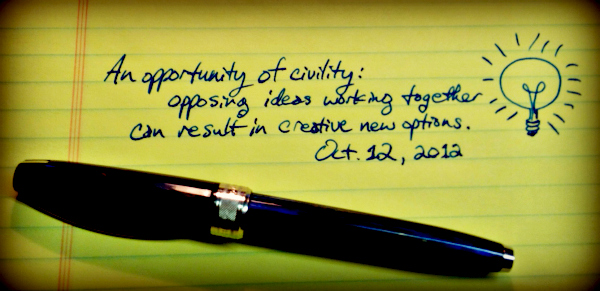 An opportunity of civility:
opposing ideas working together
can result in creative new options.
Oct. 12, 2012